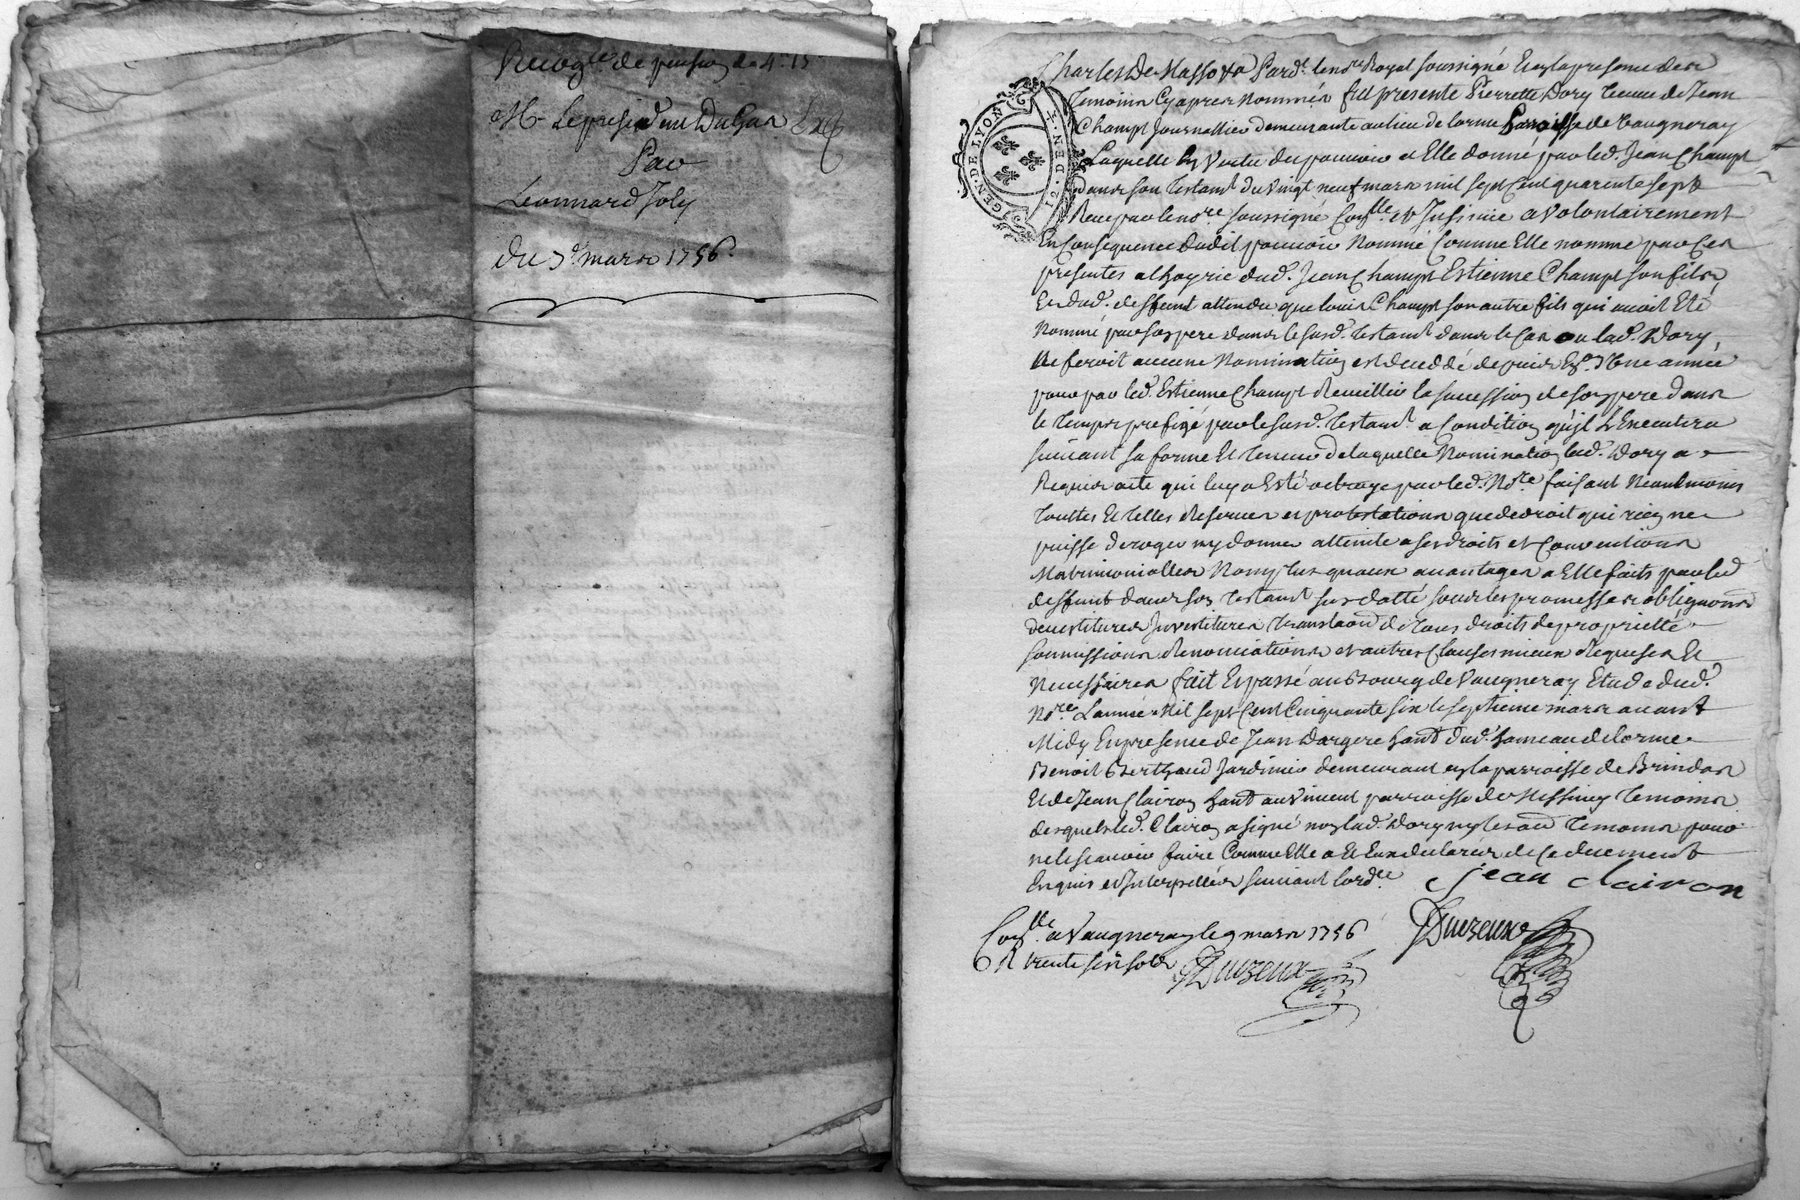 Recog.ce de pension de 4lt 15
Mr Le president Dugas &c
Par
Léonnard Joly
du 3e mars 1756
GEN. DE LYON
12. DEN. X.
Charles De Massoxo Pard.t le no.re Royal soussigné Et en la presence des
Temoins Cy apres nommés fut presente Pierrette Dory veuve de Jean
Champt Journallier demeurante au lieu de lorme Parroisse de Vaugneray
Laquelle En Vertu du pouvoir a Elle donné par led. Jean Champt
dans son Testamt du Vingt neuf mars mil sept Cent quarente sept
Receu par le no.re soussigné Con.lle et Insinué a Volontairement
En Consequence dudit pouvoir Nommé Comme Elle nomme par Ces
presentes a lhoyrie dud. Jean Champt Estienne Champt son fils
Et dud. deffunt attendu que louis Champt son autre fils qui avoit Eté
Nommé par son pere dans le susd. Testamt dans le Cas ou lad. Dory
Ne feroit aucune Nomination est decedé depuis Une année
pour par led. Estienne Champt Recueillir la succession de son pere dans
le Temps prefigé par le susd. Testamt a Condition qu'il L'Executera
suivant sa forme Et Teneur de laquelle Nomination lad. Dory a
Requis acte qui luy a Esté octroyé par led. No.re faisant Neantmoins
Touttes Et Telles Reserves et protestations que de droit qui rien ne
puisse deroger ny donner atteinte a ses droits et Conventions
Matrimonialles Non plus qu'aux avantages a Elle faits par led
deffunt dans son Testamt susdatté sous les promesses obligaons
devestitures Investitures Translaon de Tous droits de proprietté
soumissions Renonciations et autres Clauses mieux Requises Et
Necessaires fait Et passé au Bourg de Vaugneray Etude dud.
No.re L'année Mil sept Cent Cinquante six le septieme mars avant
Midy En presence de Jean Dargere hant dud. hameau de lorme
Benoit Berthaud Jardinier demeurant en la parroisse de Brindas
Et de Jean Clairon hant au Vincent parroisse de Messimy Temoins
desquels led. Clairon a signé non lad. Dory ny les au Temoins pour
ne le sçavoir faire Comme Elle a Et Eux declarer de Ce duement
Enquis et Interpellés suivant lord.ce jean clairon
Con.lle a Vaugneray le 9 mars 1756 Duzeux
R trente six sols Duzeux